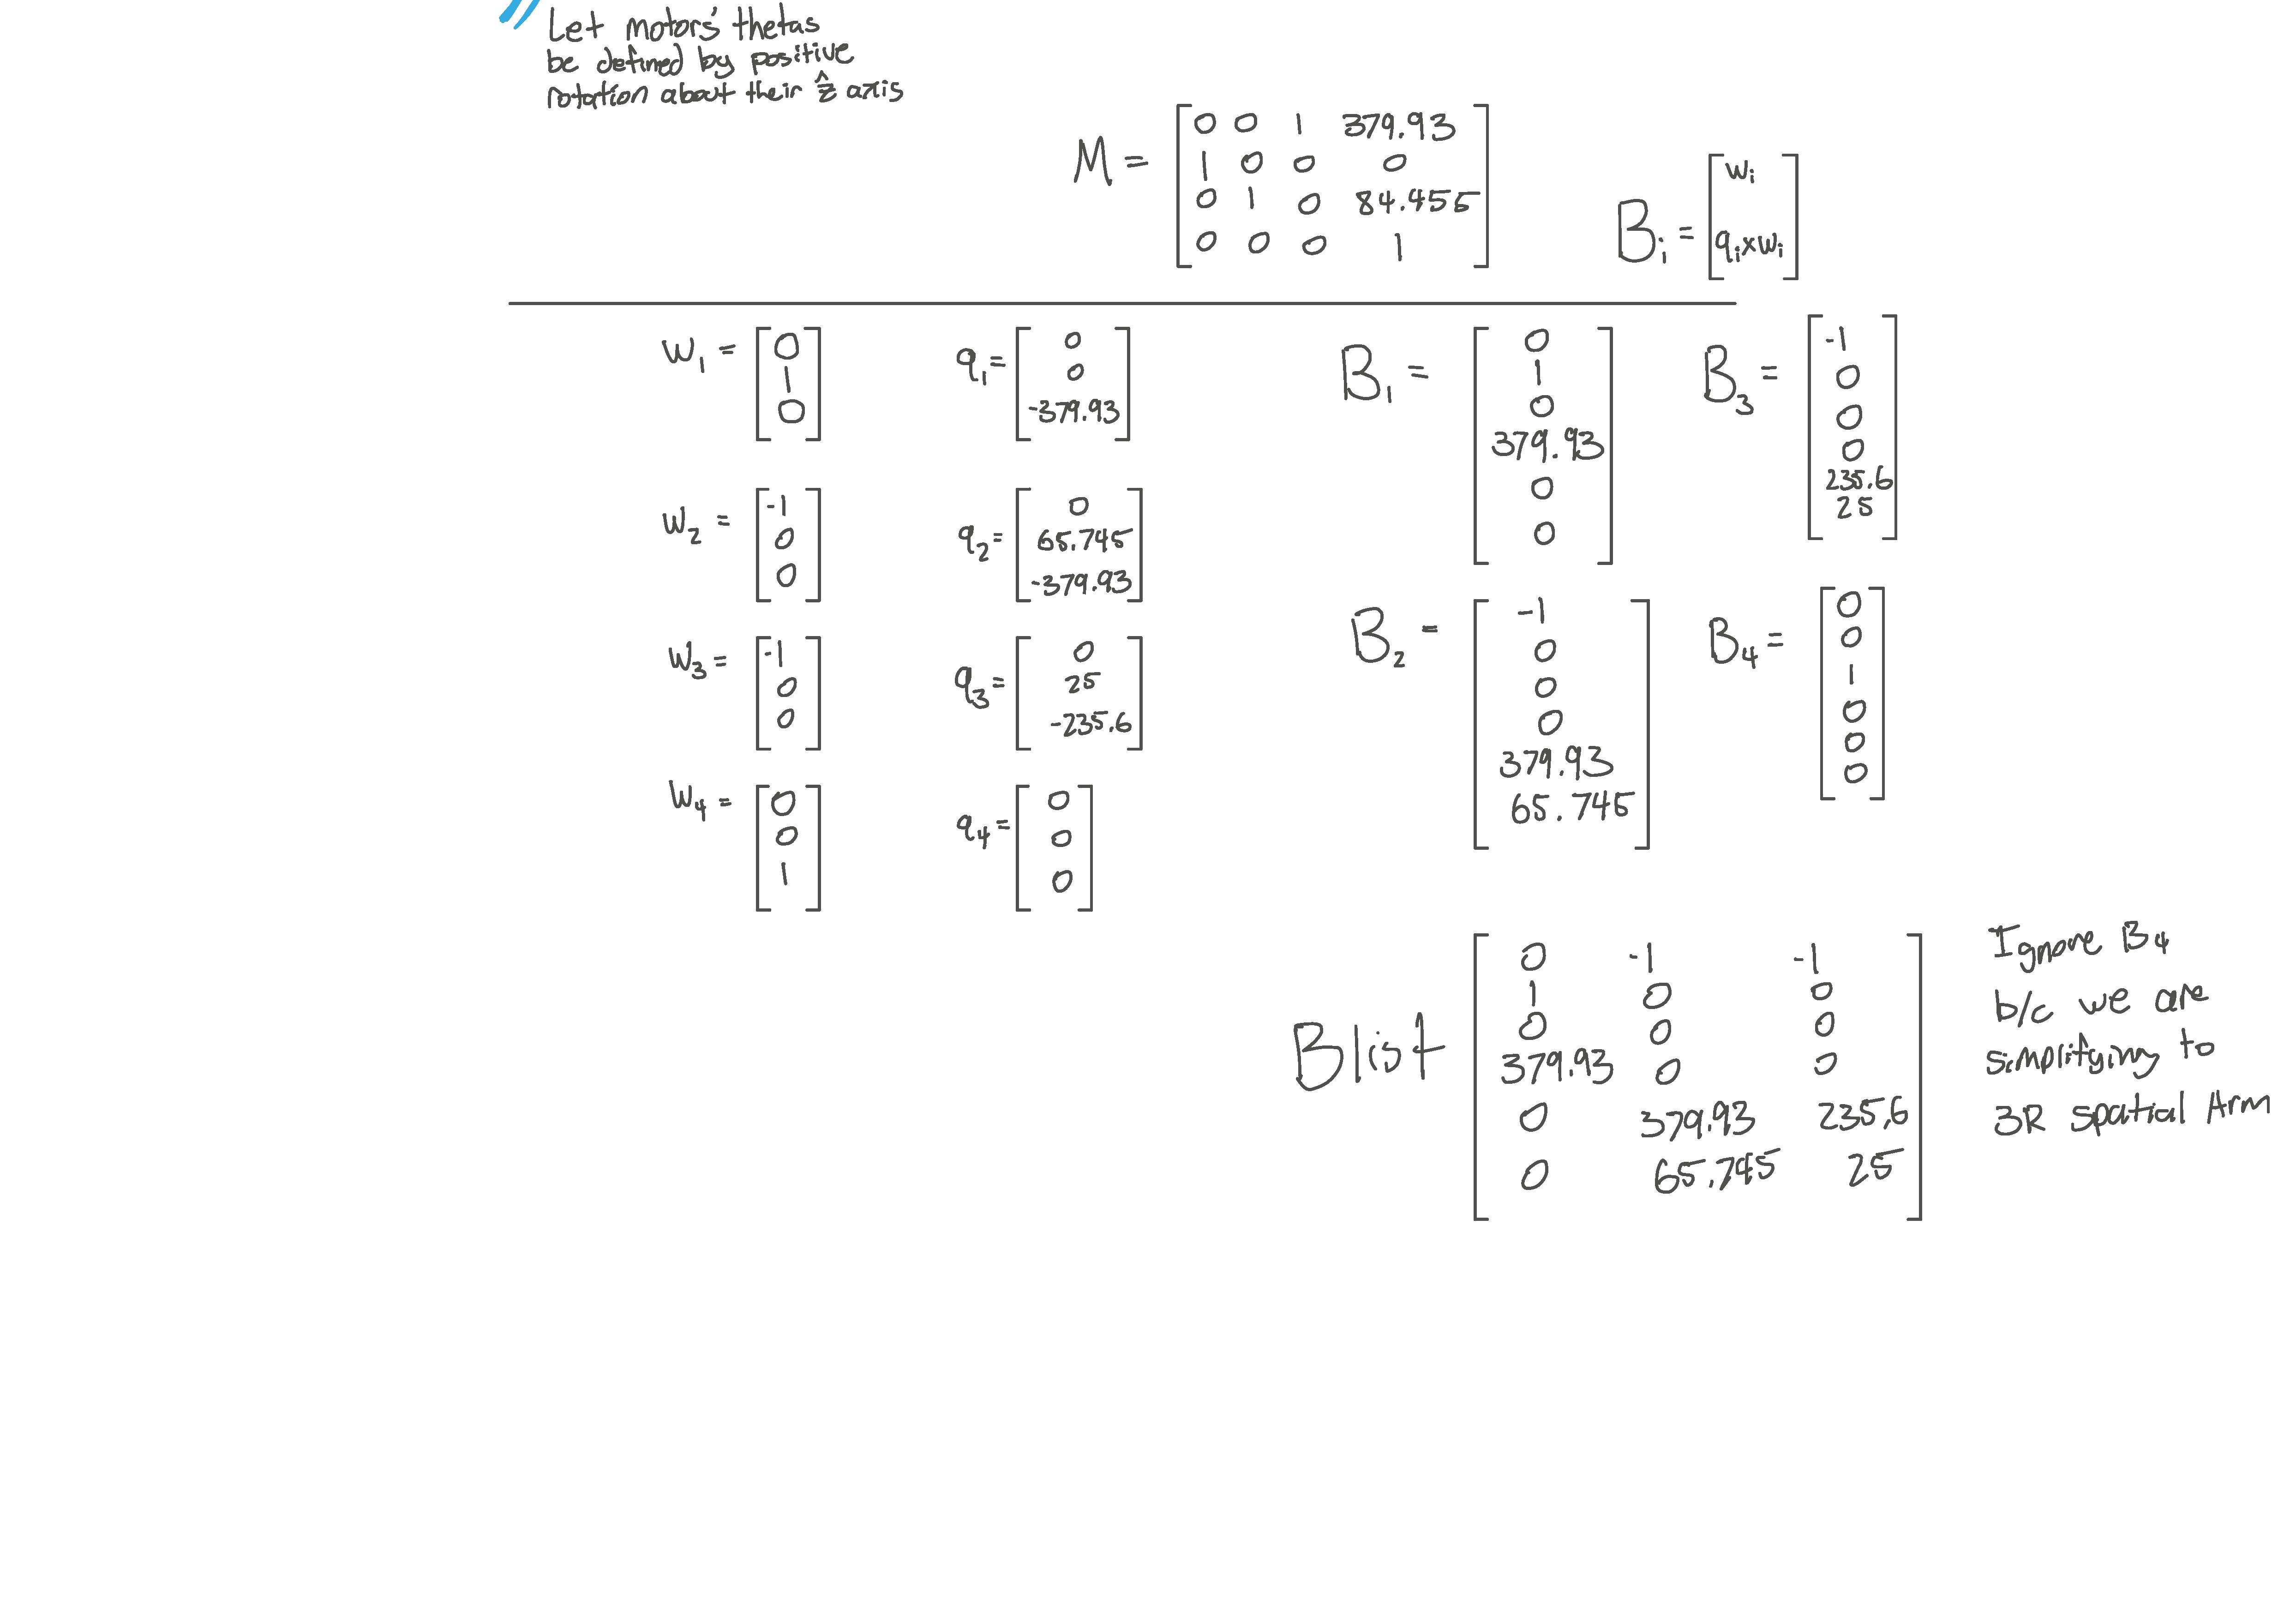 Let motors' thetas
be defined by positive
rotation about their ẑ axis
M = [0 0 1 379.93
1 0 0 0
0 1 0 84.455
0 0 0 1]
Bᵢ = [wᵢ
qᵢxwᵢ]
w₁ = [0
1
0]
q₁ = [0
0
-379.93]
w₂ = [-1
0
0]
q₂ = [0
65.745
-379.93]
w₃ = [-1
0
0]
q₃ = [0
25
-235.6]
w₄ = [0
0
1]
q₄ = [0
0
0]
B₁ = [0
1
0
379.93
0
0]
B₃ = [-1
0
0
0
235.6
25]
B₂ = [-1
0
0
0
379.93
65.745]
B₄ = [0
0
1
0
0
0]
Blist [0 -1 -1
1 0 0
0 0 0
379.93 0 0
0 379.93 235.6
0 65.745 25]
Ignore B₄
b/c we are
simplifying to
3R spatial Arm